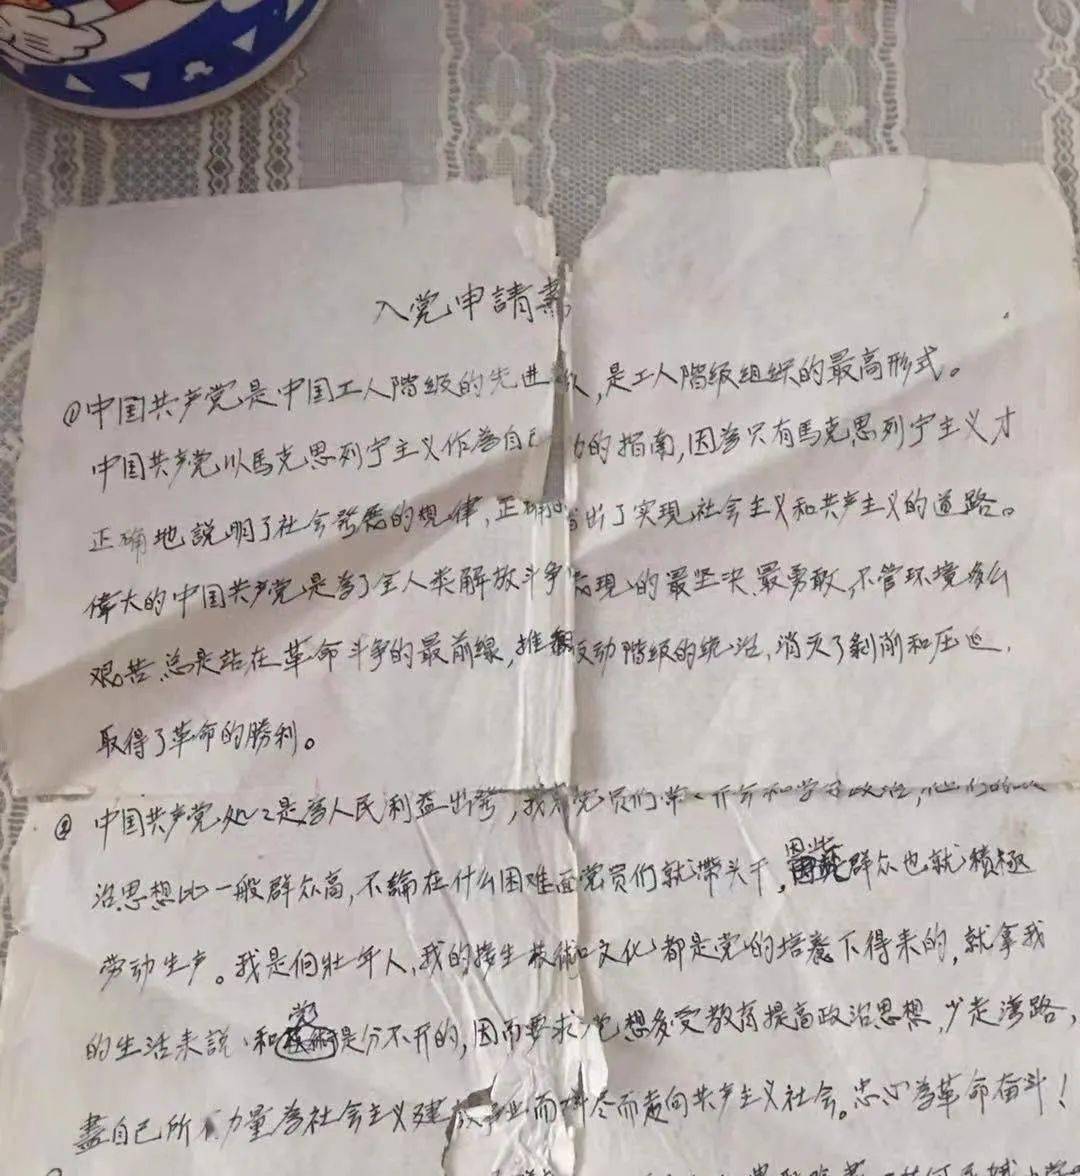 入党申請書
①中国共产党是中国工人階級的先进队,是工人階級組織的最高形式。
中国共产党以馬克思列宁主义作為自己的指南,因為只有馬克思列宁主义才
正确地説明了社会發展的規律,正确出了实現社会主义和共产主义的道路。
偉大的中国共产党是為了全人类解放斗争現的最坚决、最勇敢,不管环境多么
艰苦总是站在革命斗争的最前線,推翻反动階級的統治,消灭了剝削和压迫,
取得了革命的勝利。
② 中国共产党处处是為人民利益出發,我党员们学习政治,他们
治思想比一般群众高,不論在什么困难面党员们就帶头干,因此群众也就積極
劳动生产。我是個壯年人,我的接生技術和文化都是党的培養下得来的,就拿我
的生活来説、和党是分不开的,因而要求党想多受教育提高政治思想,少走湾路,
盡自己所力量為社会主义建業而尽而走向共产主义社会。忠心為革命奋斗!